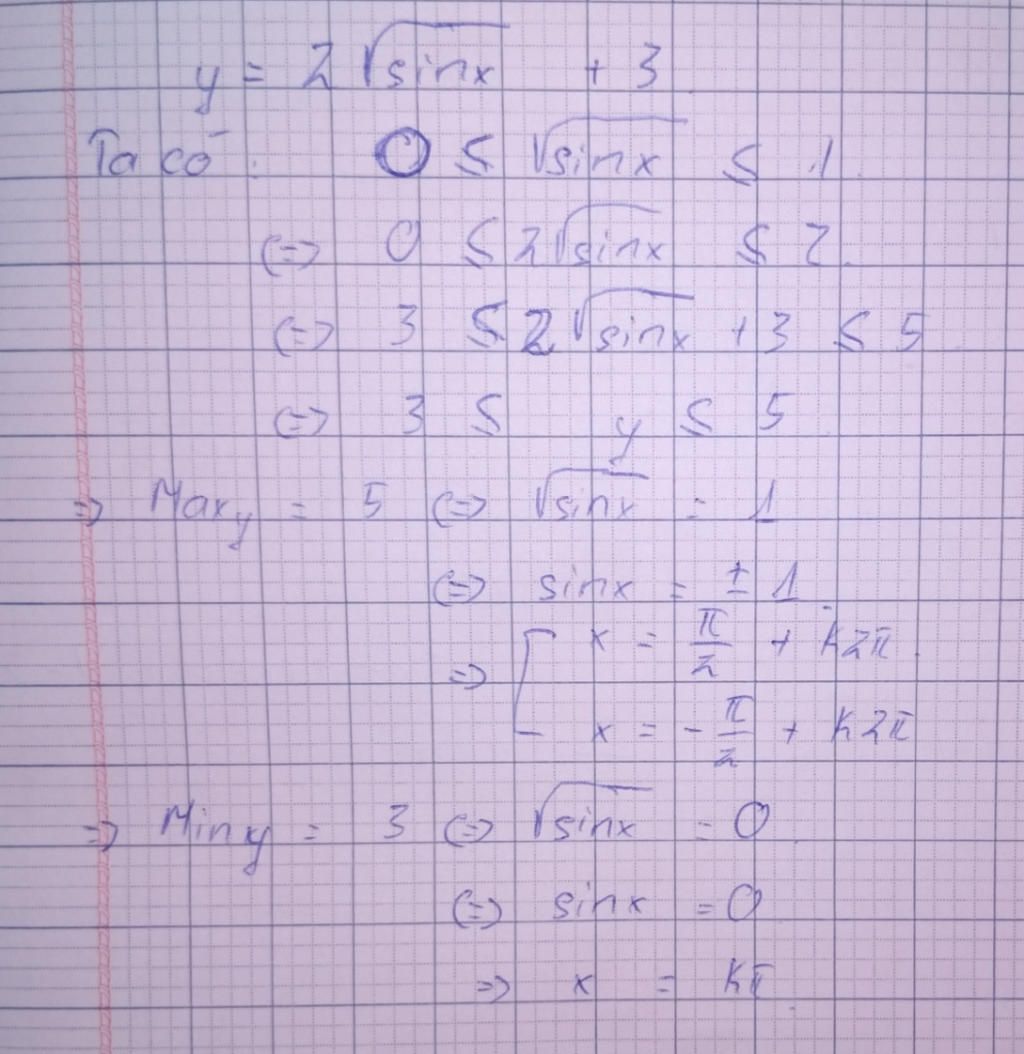 y = 2√sinx + 3
Ta có: 0 ≤ √sinx ≤ 1.
(=) 0 ≤ 2√sinx ≤ 2.
(=) 3 ≤ 2√sinx + 3 ≤ 5
(=) 3 ≤ y ≤ 5
=) Max y = 5 (=) √sinx = 1
(=) sinx = ± 1
=) [ x = π/2 + k2π.
x = - π/2 + k2π
=) Min y = 3 (=) √sinx = 0
(=) sinx = 0
=) x = kπ